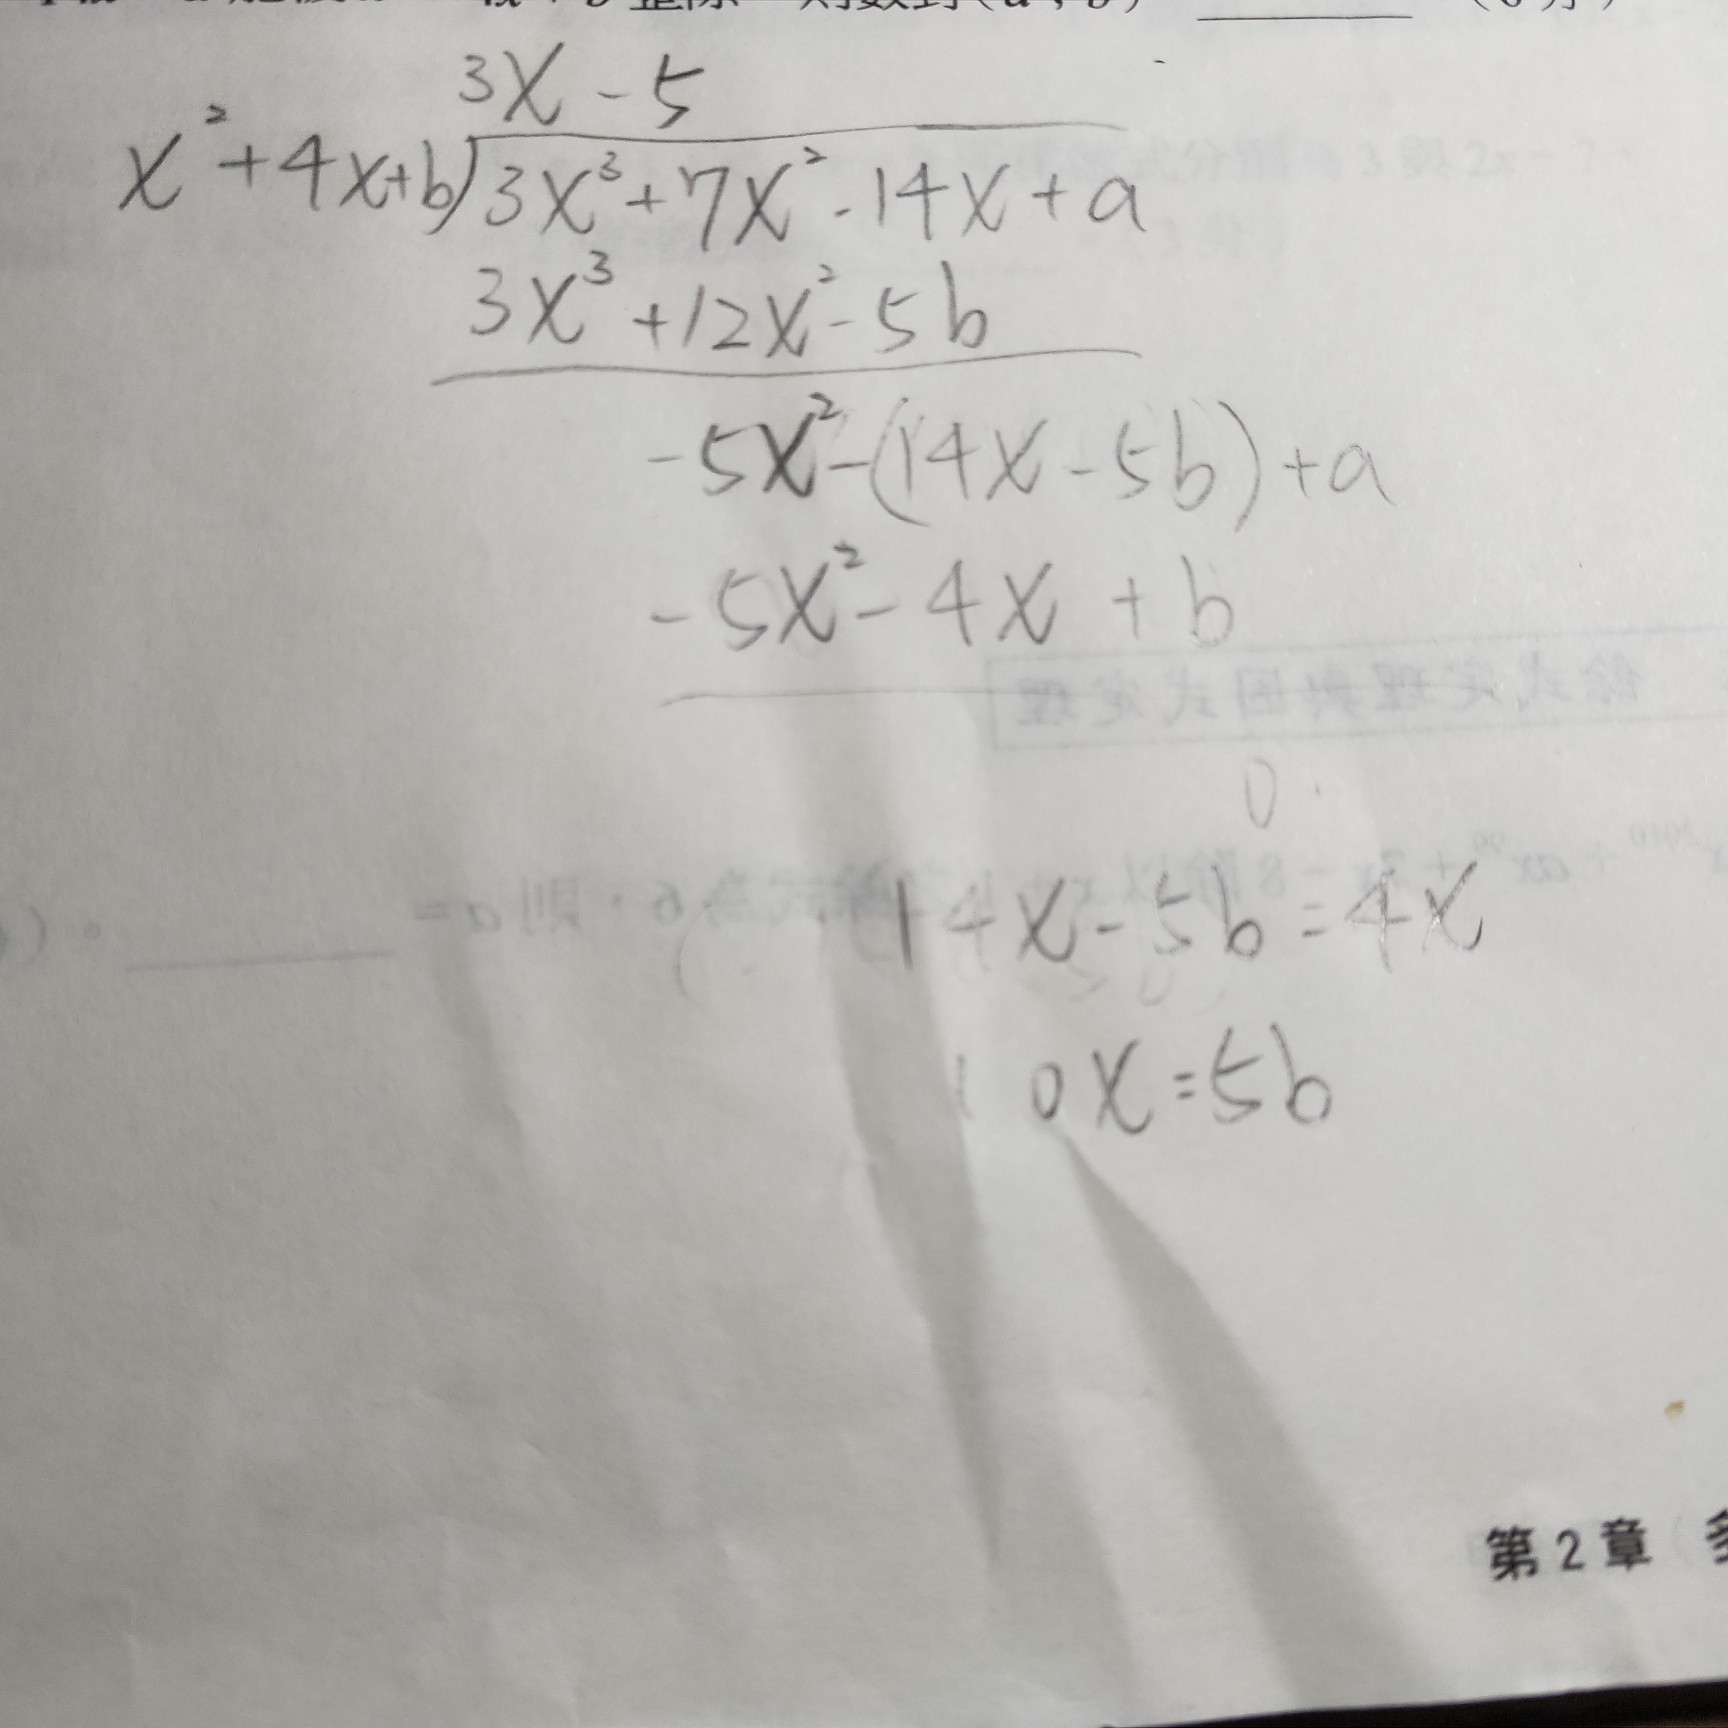 整除，則數對(a，b)
3x - 5
x² + 4x + b)3x³ + 7x² - 14x + a
3x³ + 12x² - 5b
-5x² - (14x - 5b) + a
-5x² - 4x + b
0
14x - 5b = 4x
10x = 5b
第2章